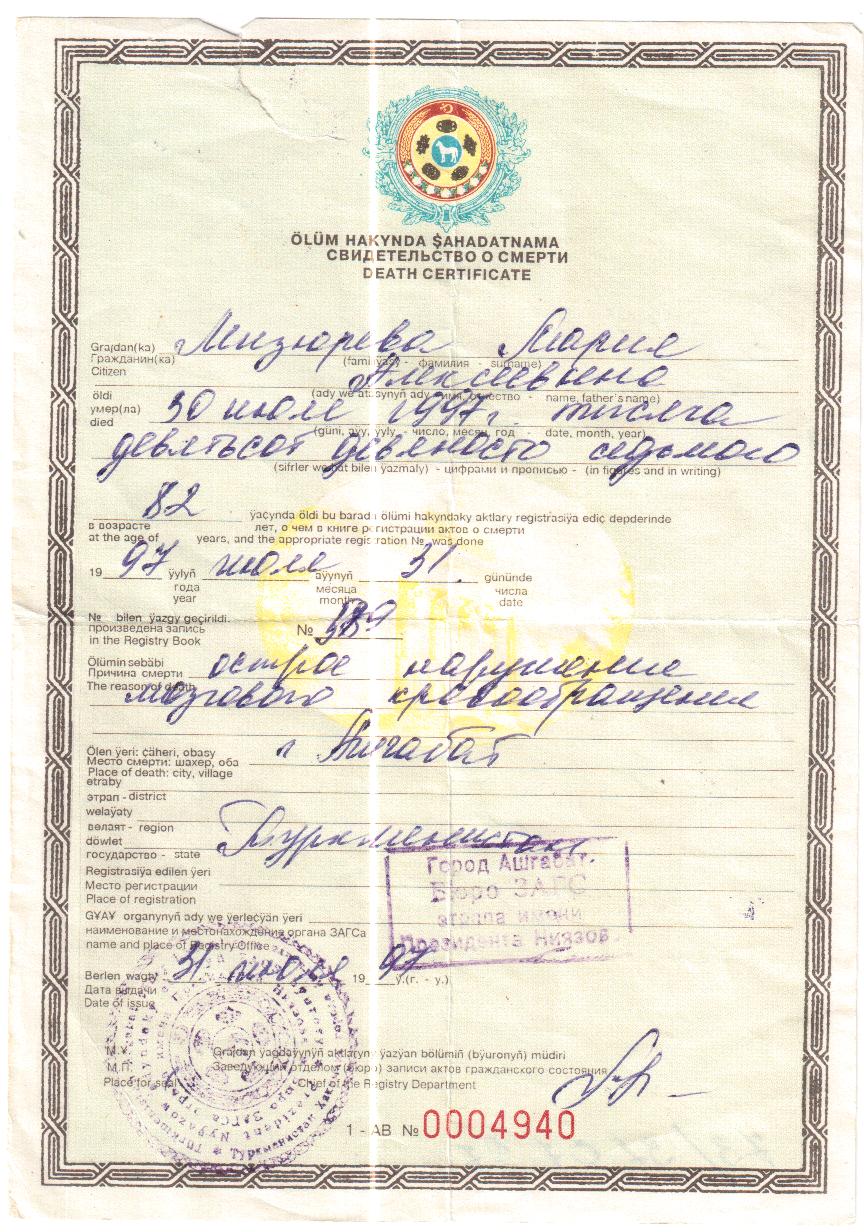 ÖLÜM HAKYNDA ŞAHADATNAMA
СВИДЕТЕЛЬСТВО О СМЕРТИ
DEATH CERTIFICATE
Graƶdan(ka)
Гражданин(ка)
Citizen
Мизюрева Мария
(familiýasy - фамилия - surname)
Алексеевна
(ady we atasynyň ady - имя, отчество - name, father's name)
öldi
умер(ла)
died
30 июля 1997г. тысяча
(güni, aýy, ýyly - число, месяц, год - date, month, year)
девятьсот девяносто седьмого
(sifrler we hat bilen ýazmaly) - цифрами и прописью - (in figures and in writing)
82 ýaşynda öldi bu barada ölümi hakyndaky aktlary registrasiýa ediş depderinde
в возрасте лет, о чем в книге регистрации актов о смерти
at the age of years, and the appropriate registration № was done
19 97 ýylyň июля aýynyň 31 gününde
года месяца числа
year month date
№ bilen ýazgy geçirildi.
произведена запись №
in the Registry Book
Ölümin sebäbi
Причина смерти острое нарушение
The reason of death мозгового кровообращения
Ölen ýeri: şäheri, obasy
Место смерти: шахер, оба г Ашгабат
Place of death: city, village
etraby
этрап - district
welaýaty
велаят - region
döwlet
государство - state Туркменистан
Registrasiýa edilen ýeri
Место регистрации
Place of registration
Город Ашгабат.
Бюро ЗАГС
этрапа имени
Президента Ниязов
GÝAÝ organynyň ady we ýerleşýän ýeri
наименование и местонахождение органа ЗАГСа
name and place of Registry Office
Berlen wagty 31 июля 19 97 ý.(г. - y.)
Дата выдачи
Date of issue
М.Ý. Graƶdan ýagdaýynyň aktlaryny ýazýan bölümiň (býuronyň) müdiri
М.П. Заведующий отделом (бюро) записи актов гражданского состояния
Place for seal Chief of the Registry Department
1 - АВ № 0004940